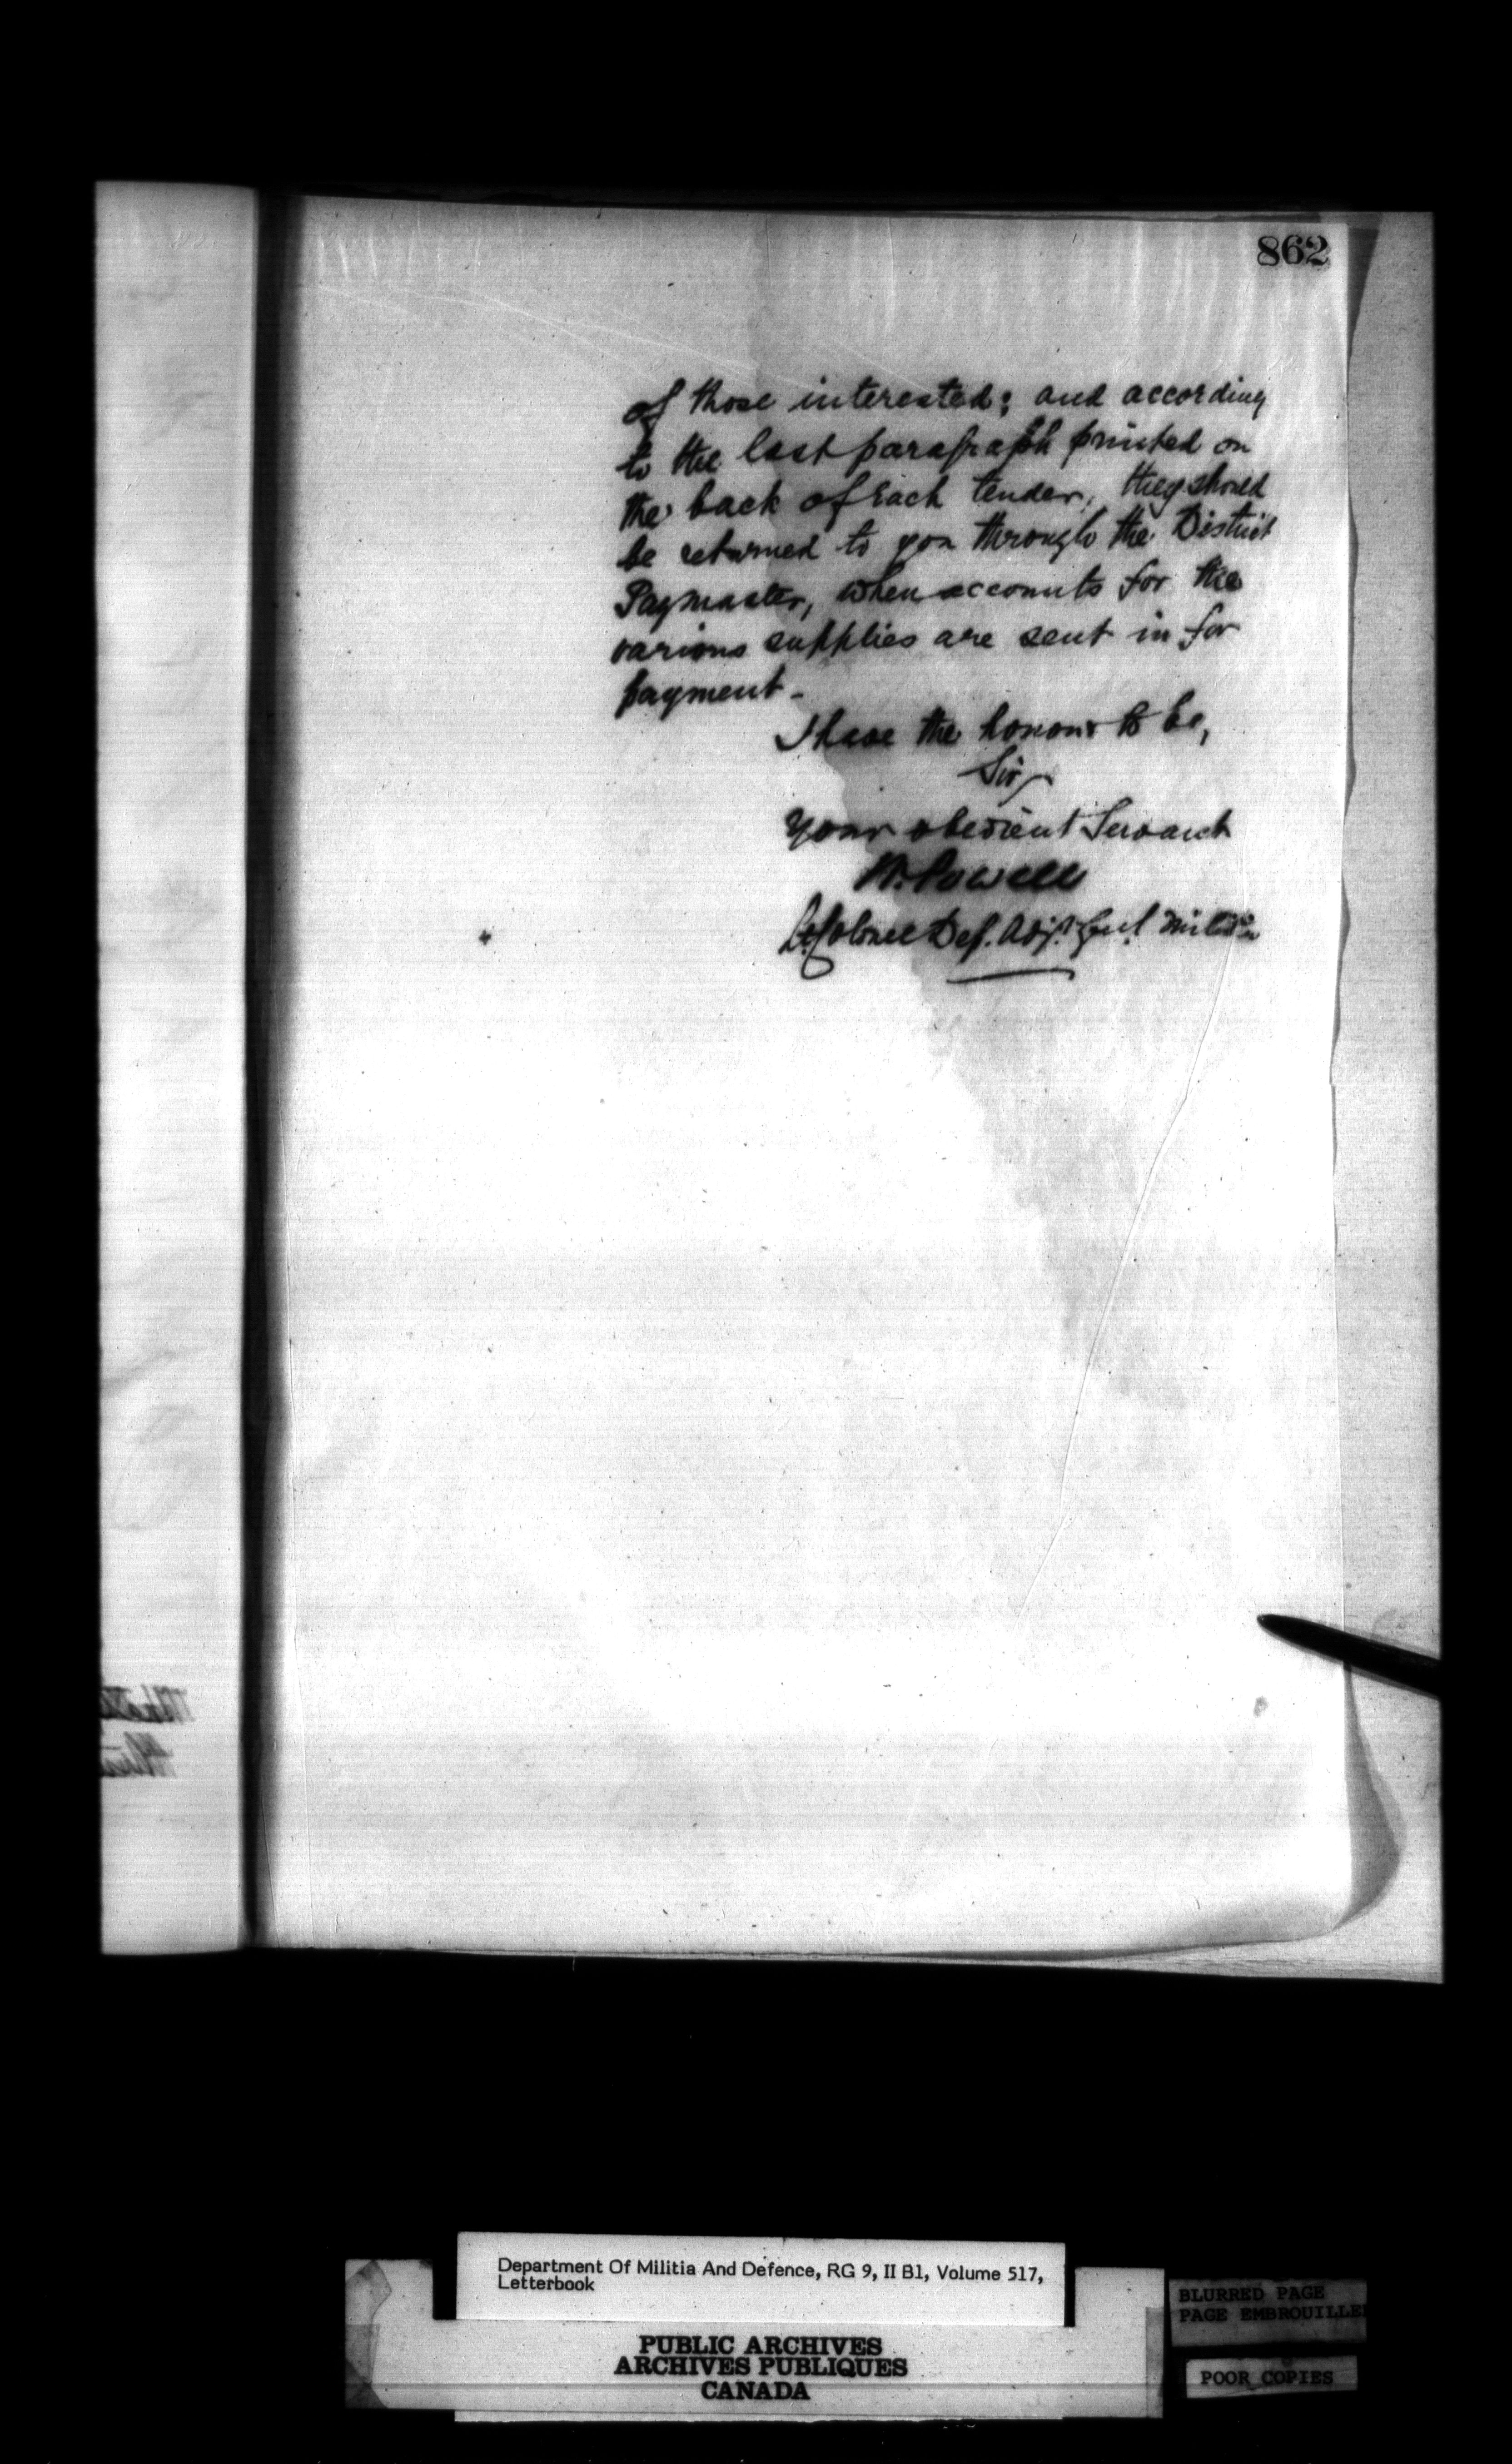 862
of those interested; and according
to the last paragraph printed on
the back of Each tender, they should
be returned to you through the District
Paymaster, when accounts for the
various supplies are sent in for
payment -
I have the honour to be,
Sir
Your obedient Servant
W. Powell
Lt. Colonel Dep. Adjt. Genl. Militia
Department Of Militia And Defence, RG 9, II B1, Volume 517,
Letterbook
PUBLIC ARCHIVES
ARCHIVES PUBLIQUES
CANADA
BLURRED PAGE
PAGE EMBROUILLE
POOR COPIES